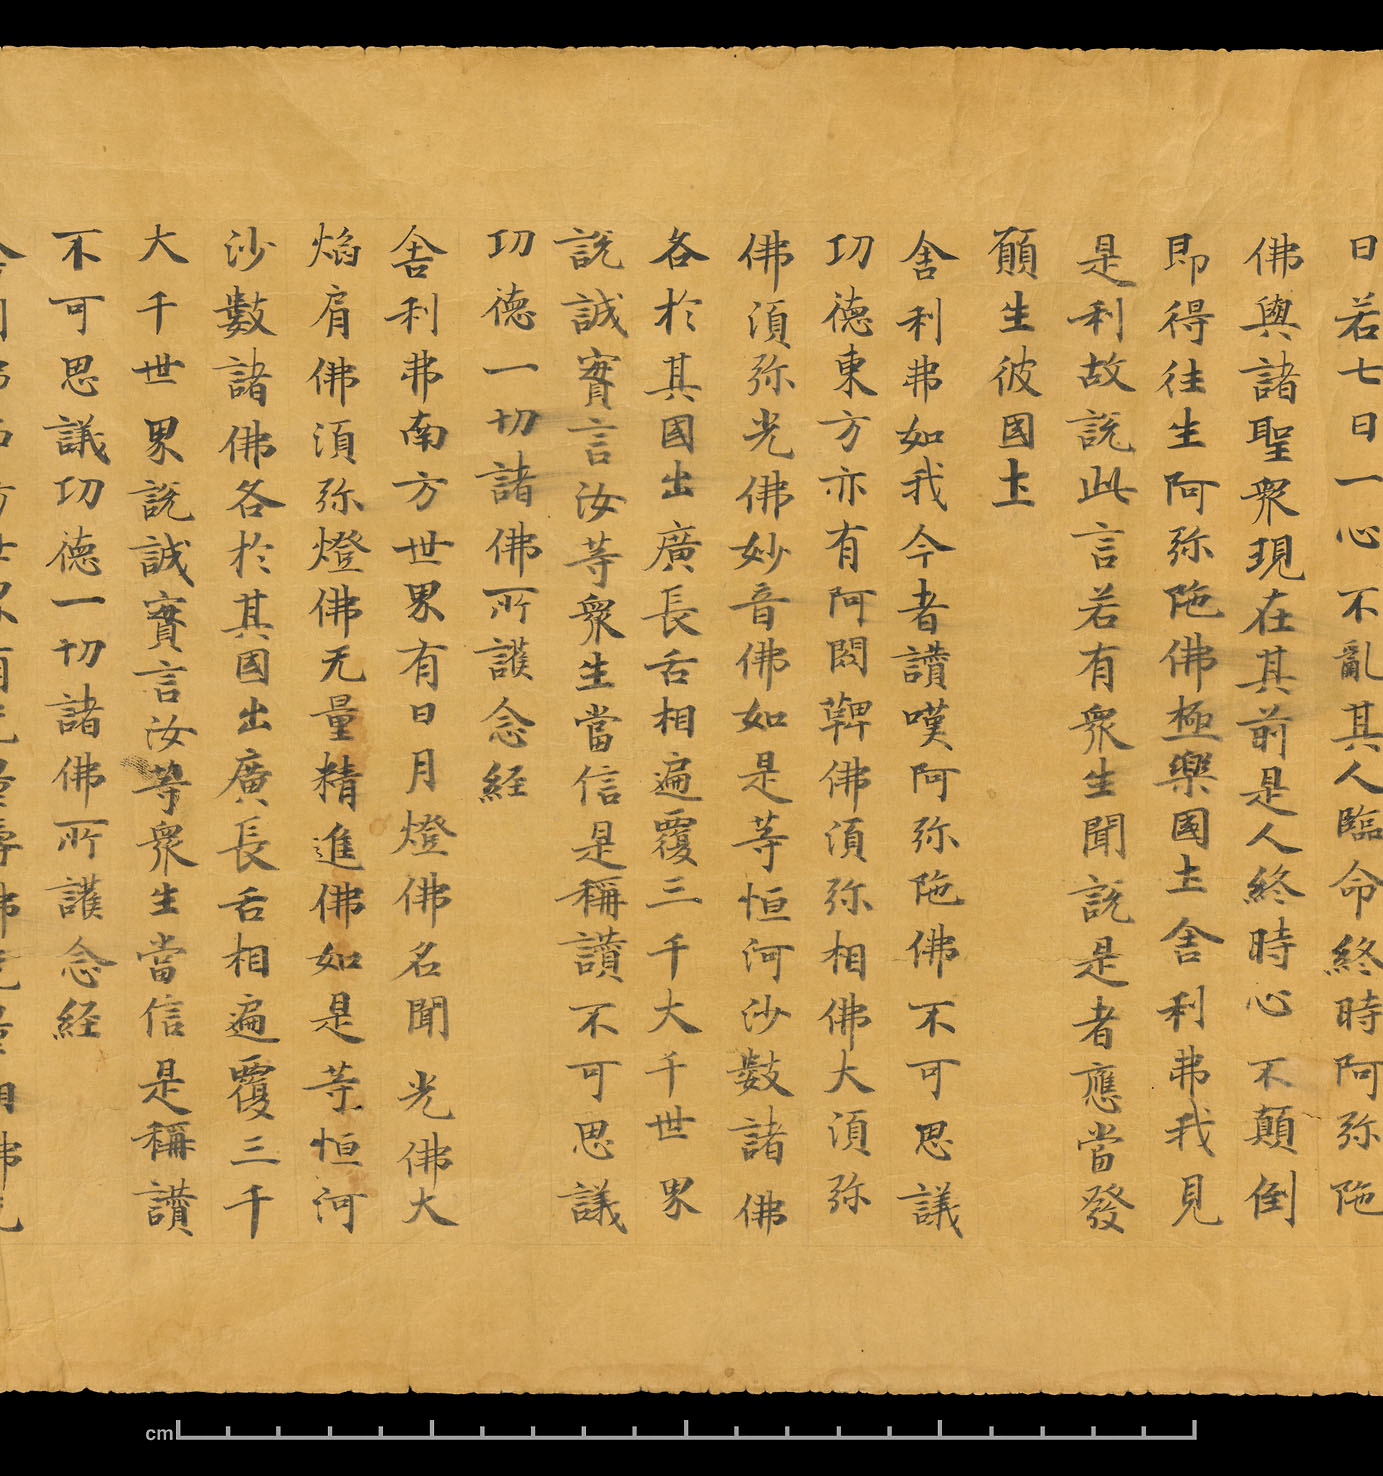 日若七日一心不亂其人臨命終時阿弥陁
佛與諸聖衆現在其前是人終時心不顛倒
即得往生阿弥陁佛極樂國土舍利弗我見
是利故說此言若有衆生聞說是者應當發
願生彼國土
舍利弗如我今者讃嘆阿弥陁佛不可思議
功德東方亦有阿閦鞞佛湏弥相佛大湏弥
佛湏弥光佛妙音佛如是等恒河沙數諸佛
各於其國出廣長舌相遍覆三千大千世界
說誠實言汝等衆生當信是稱讃不可思議
功德一切諸佛所護念経
舍利弗南方世界有日月燈佛名聞光佛大
焰肩佛湏弥燈佛无量精進佛如是等恒河
沙數諸佛各於其國出廣長舌相遍覆三千
大千世界說誠實言汝等衆生當信是稱讃
不可思議功德一切諸佛所護念経
cm